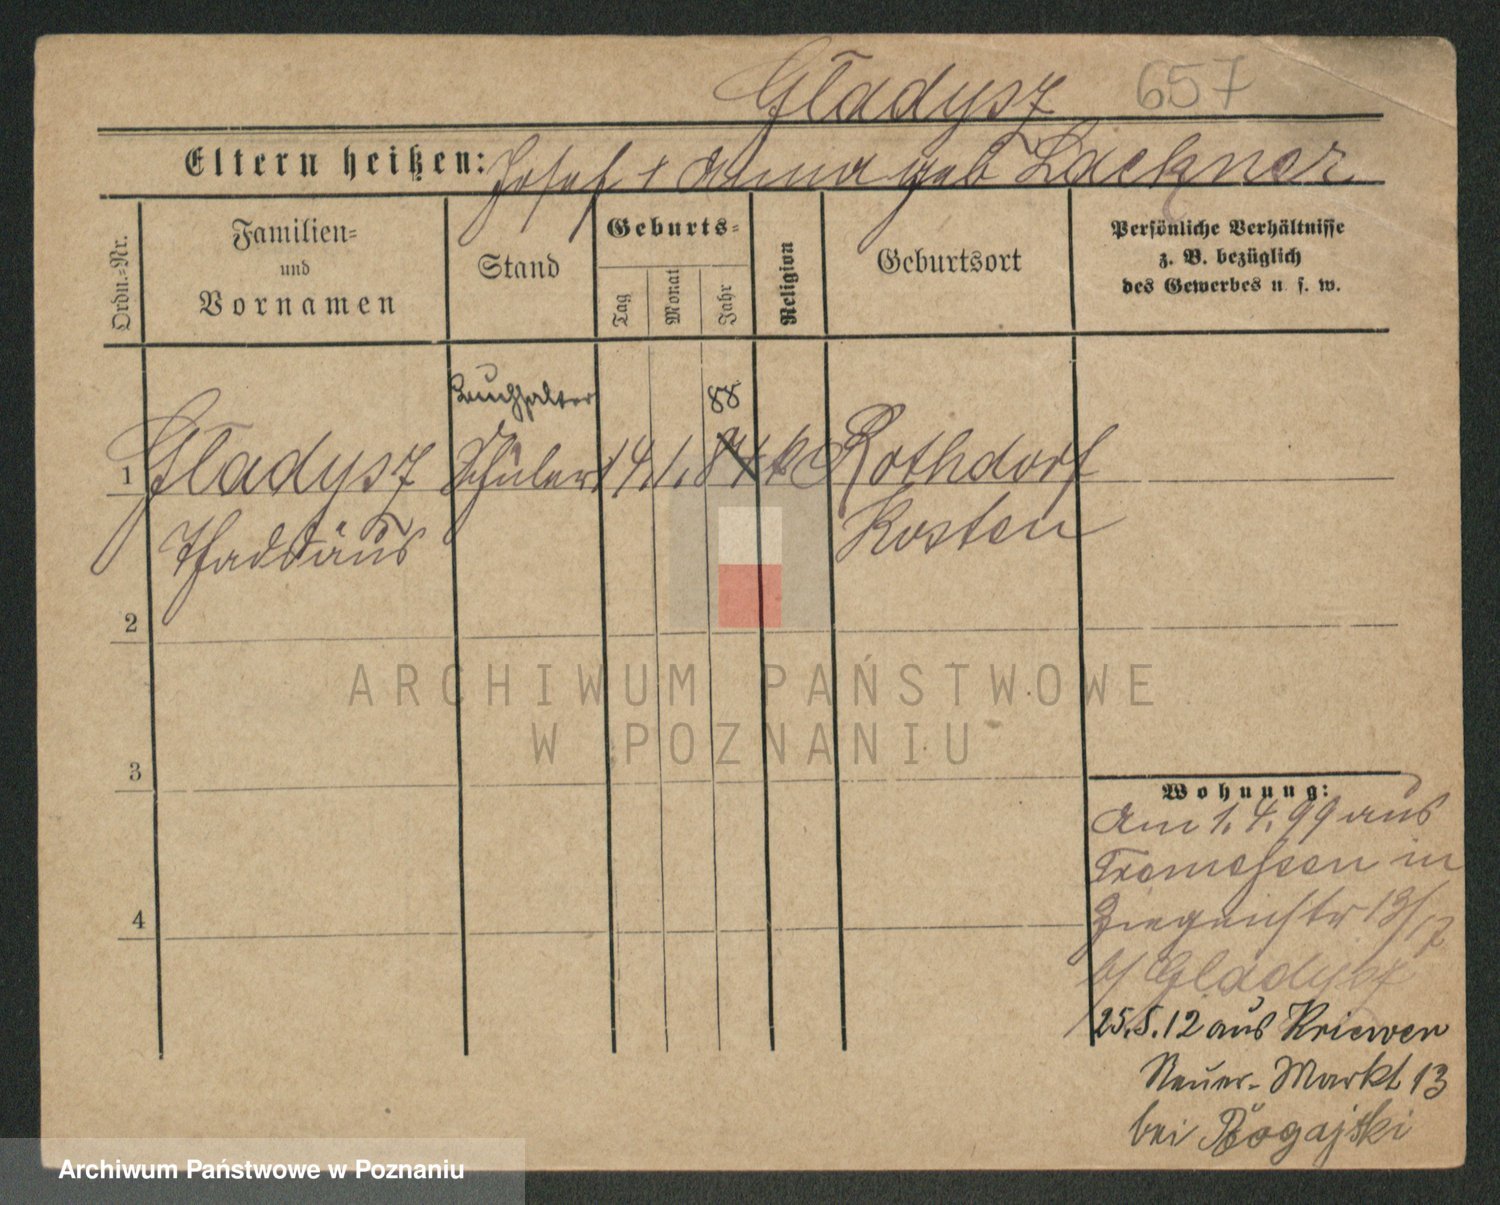 Gładysz 657
Eltern heißen: Josef + Anna geb Lackner
Ordn.=Nr.
Familien=
und
Vornamen
Stand
Geburts=
Tag
Monat
Jahr
Religion
Geburtsort
Persönliche Verhältnisse
z. B. bezüglich
des Gewerbes u. s. w.
Buchhalter 88
1 Gładysz Schüler 14. 1. 87 k Rothdorf
Thaddäus Kosten
2
3
4
Wohnung:
Am 1. 4. 99 aus
Tremessen in
13/17
b/ Gładysz
25.5.12 aus Kriewen
Neuer-Markt 13
bei Bogajski
ARCHIWUM PAŃSTWOWE
W POZNANIU
Archiwum Państwowe w Poznaniu